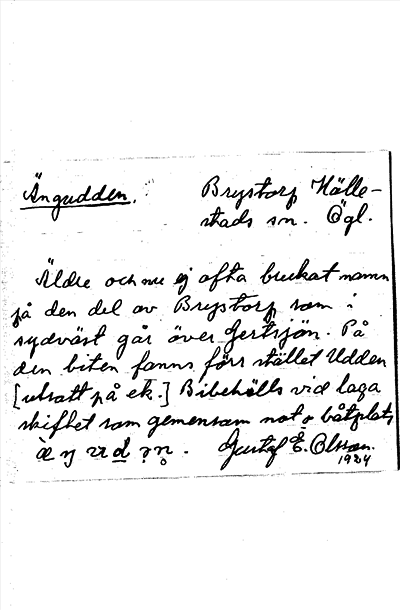 Ängudden.
Brystorp Hälle-
stads sn. Ögl.
Äldre och nu ej ofta brukat namn
på den del av Brystorp som i
sydväst går över Gertsjön. På
den biten fanns förr stället Udden
[utsatt på ek.] Bibehålls vid laga
skiftet som gemensam not o båtplats
Gustaf E. Olsson.
1924